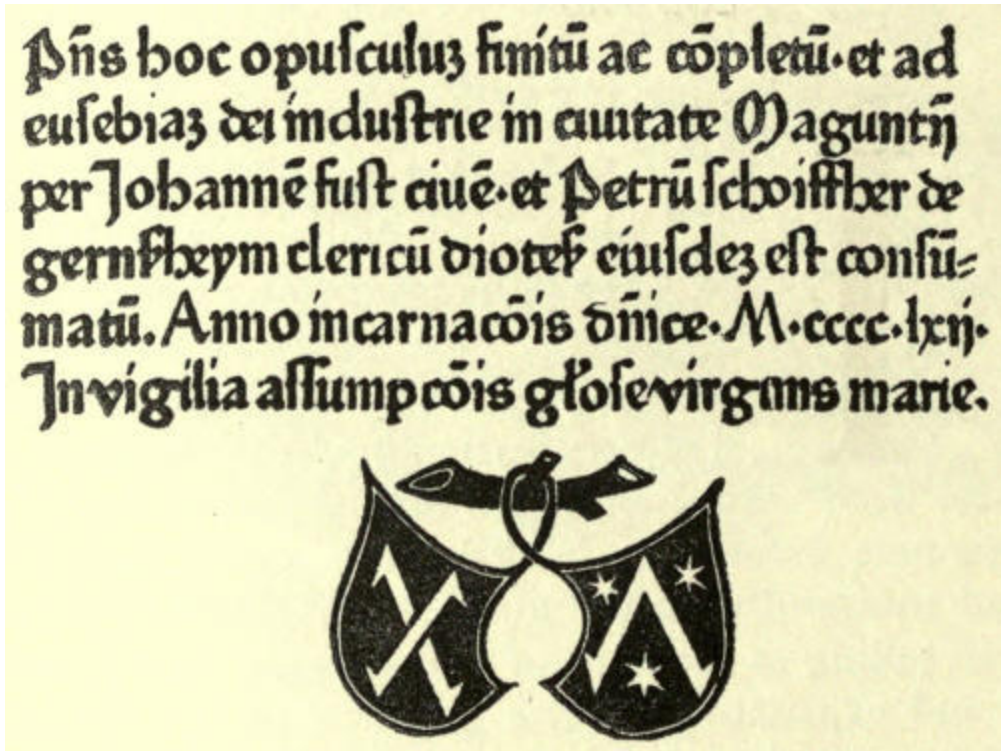 Pn̄s hoc opuſculuꝫ finitū ac cōpletū·et ad
euſebiaꝫ dei induſtrie in ciuitate Maguntij
per Johannē fuſt ciuē·et Petrū ſchoiffher de
gernſzheym clericū diotesz eiuſdeꝫ eſt conſū⸗
matū. Anno incarnacōis dn̄ice·M·cccc·lxij·
In vigilia aſſumpcōis gl'oſe virginis marie.